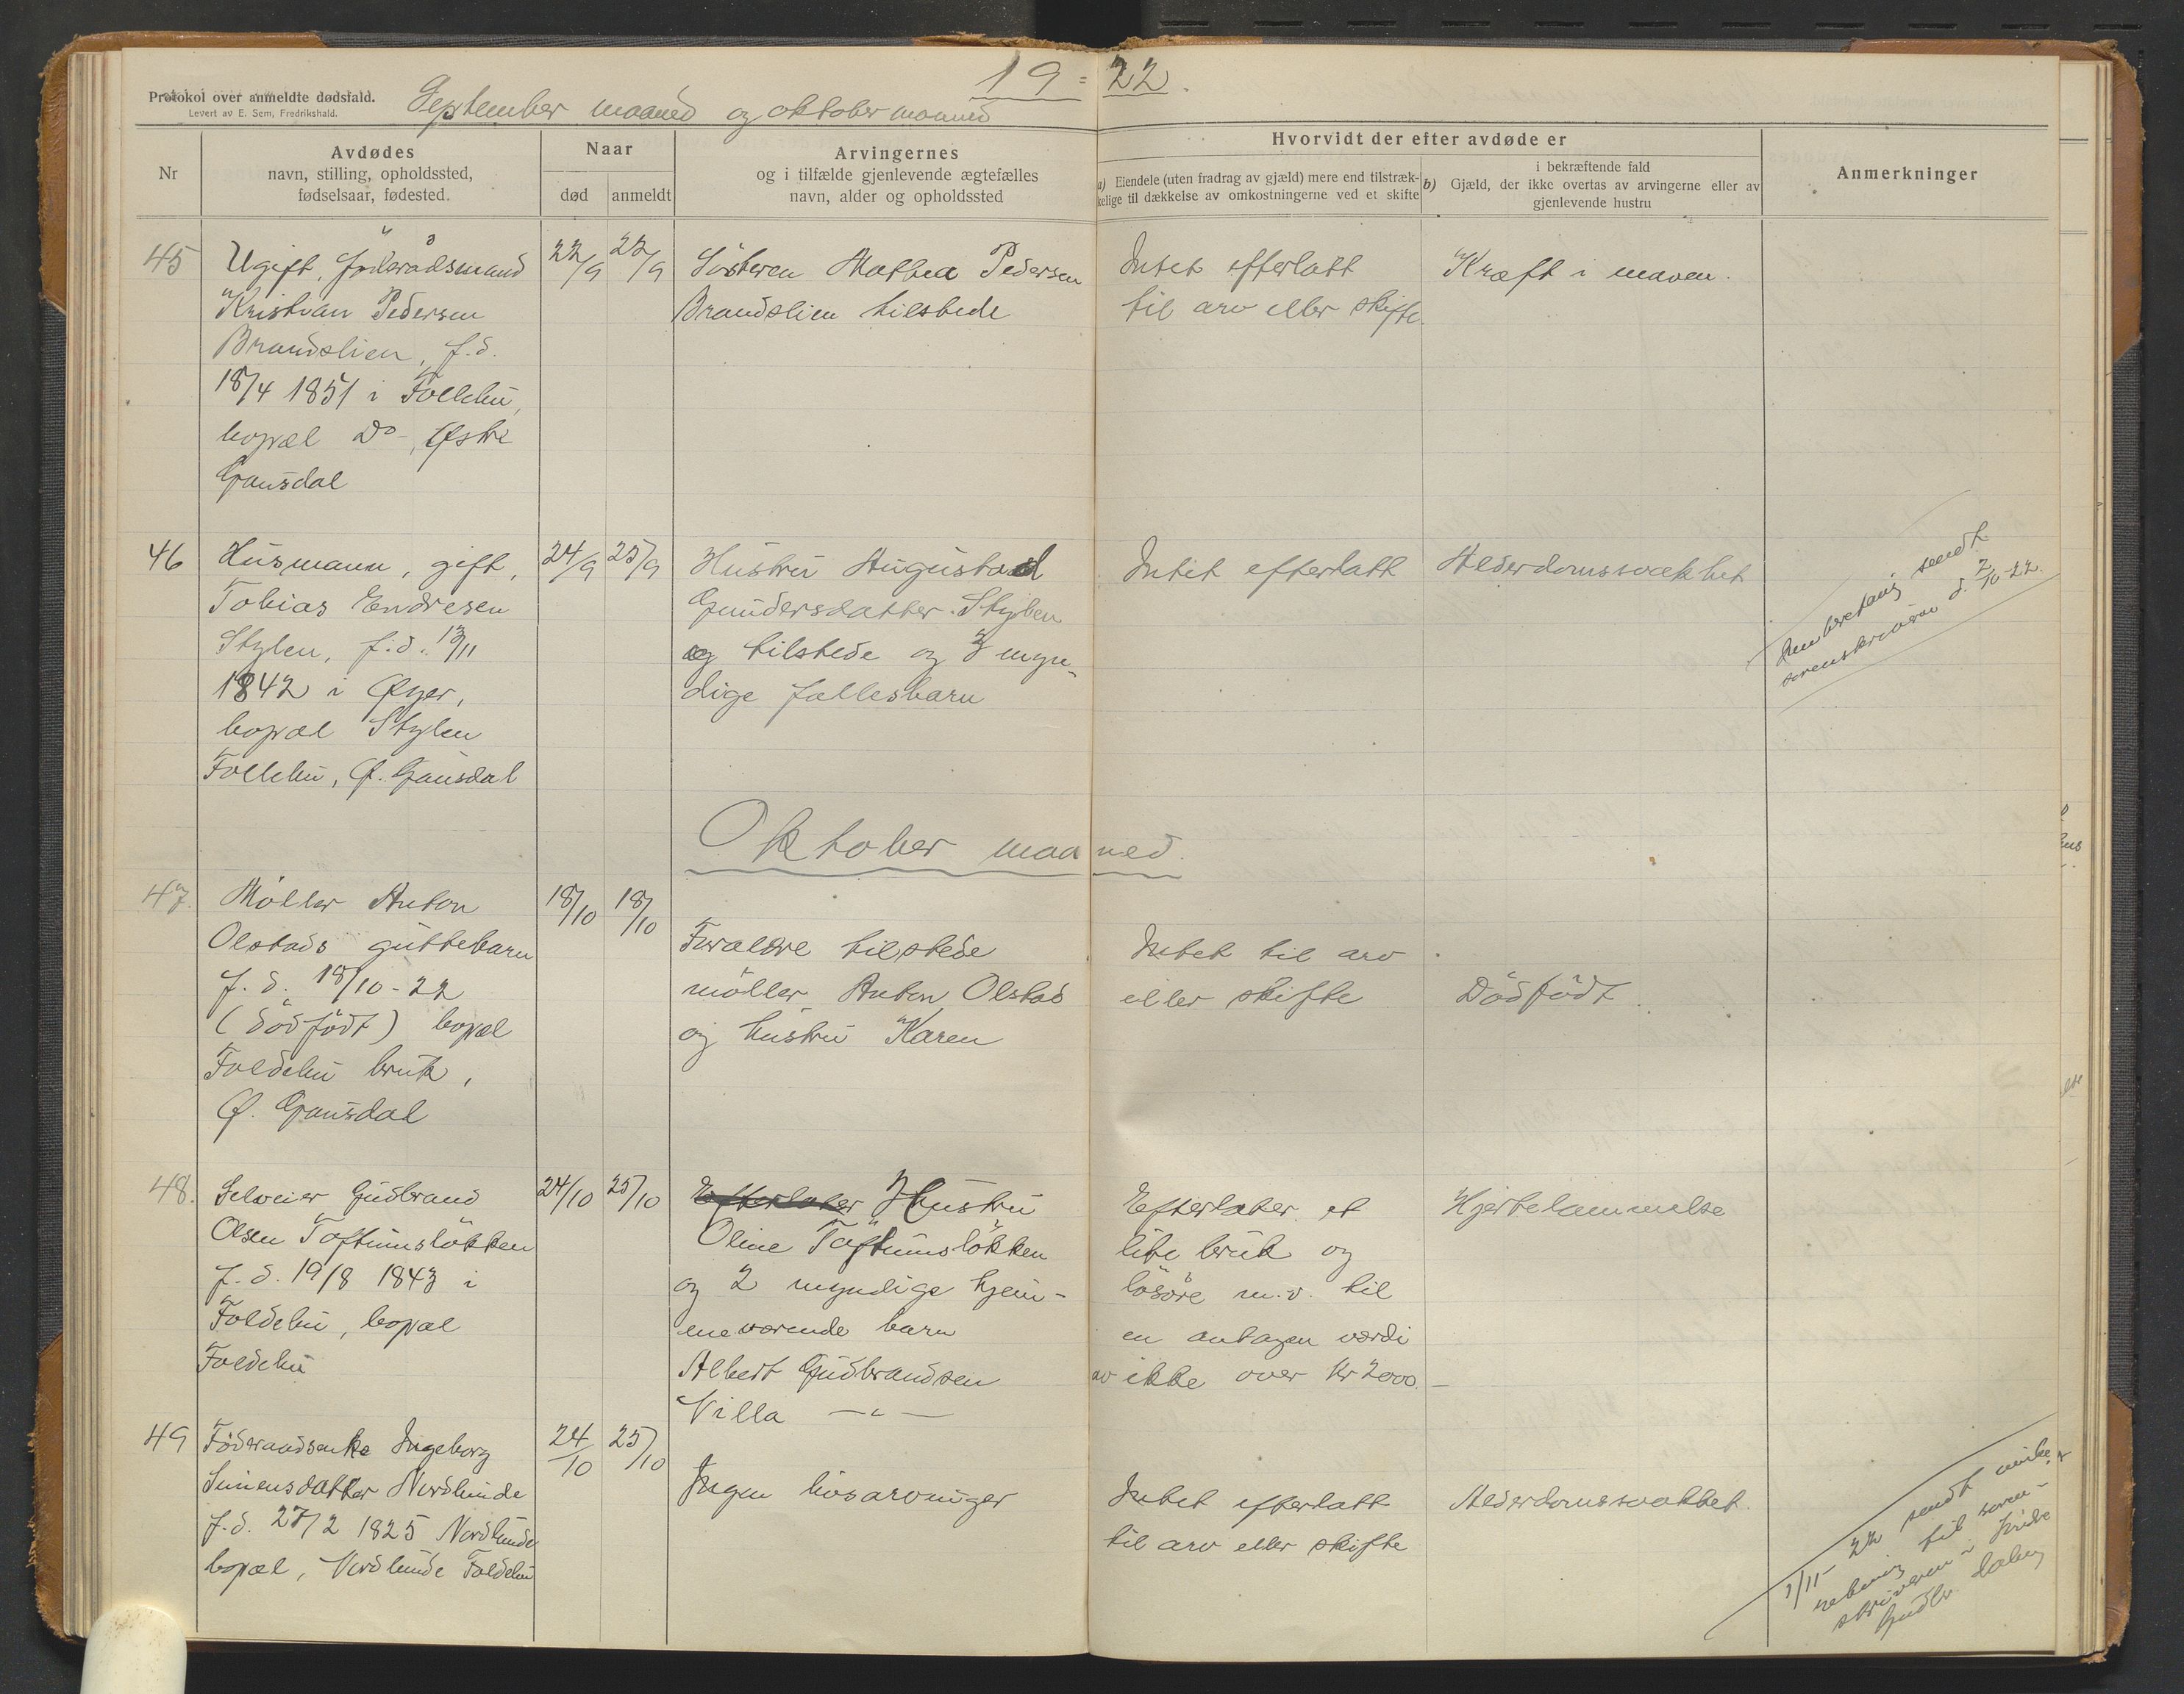 19 = 22.
Protokol over anmeldte dødsfald.
Levert av E. Sem, Fredrikshald.
September maaned og oktober maaned
Nr
Avdødes
navn, stilling, opholdssted,
fødselsaar, fødested.
Naar
død
anmeldt
Arvingernes
og i tilfælde gjenlevende ægtefælles
navn, alder og opholdssted
Hvorvidt der efter avdøde er
a) Eiendele (uten fradrag av gjæld) mere end tilstræk-
kelige til dækkelse av omkostningerne ved et skifte
i bekræftende fald
b) Gjæld, der ikke overtas av arvingerne eller av
gjenlevende hustru
Anmerkninger
45
Ugift, föderådsmand
Kristian Pedersen
Brandslien, f.d.
18/4 1851 i Follebu,
bopæl Do-, Østre
Gausdal
22/9
22/9
Sösteren Mathea Pedersen
Brandslien tilstede
Intet efterlatt
til arv eller skifte.
Kræft i maven.
46
Husmann, gift,
Tobias Endresen
Stylen, f.d. 13/11
1842 i Øyer,
bopæl Stylen
Follebu, Ø. Gausdal
24/9
25/9
Hustru Augusta
Gundersdatter Stylen
og tilstede og 3 myn-
dige fællesbarn
Intet efterlatt
Alderdomssvakhet
Innberetning sendt
sorenskriveren d. 2/10-22.
Oktober maaned.
47.
Möller Anton
Olstads guttebarn
f.d. 18/10-22
(dödfödt) bopæl
Foldebu bruk,
Ø. Gausdal
18/10
18/10
Forældre tilstede
möller Anton Olstad
og hustru Karen
Intet til arv
eller skifte
Dödfödt.
48.
Selveier Gudbrand
Olsen Toftumslökken
f.d. 19/8 1843 i
Foldebu, bopæl
Foldebu
24/10
25/10
Efterlater Hustru
Oline Toftumslökken
og 2 myndige hjem-
meværende barn
Albert Gudbrandsen
Villa —"—
Efterlater et
lite bruk og
lösöre m.v. til
en antagen værdi
av ikke over kr 2000.-
Hjertelammelse
49
Föderaadsenke Ingeborg
Simensdatter Nordlunde
f.d. 27/2 1825 Nordlunde
bopæl, Nordlunde Foldebu
24/10
25/10
Ingen livsarvinger
Intet efterlatt
til arv eller skifte
Alderdomssvakhet.
1/11-22 sendt innbe-
retning til soren-
skriveren i